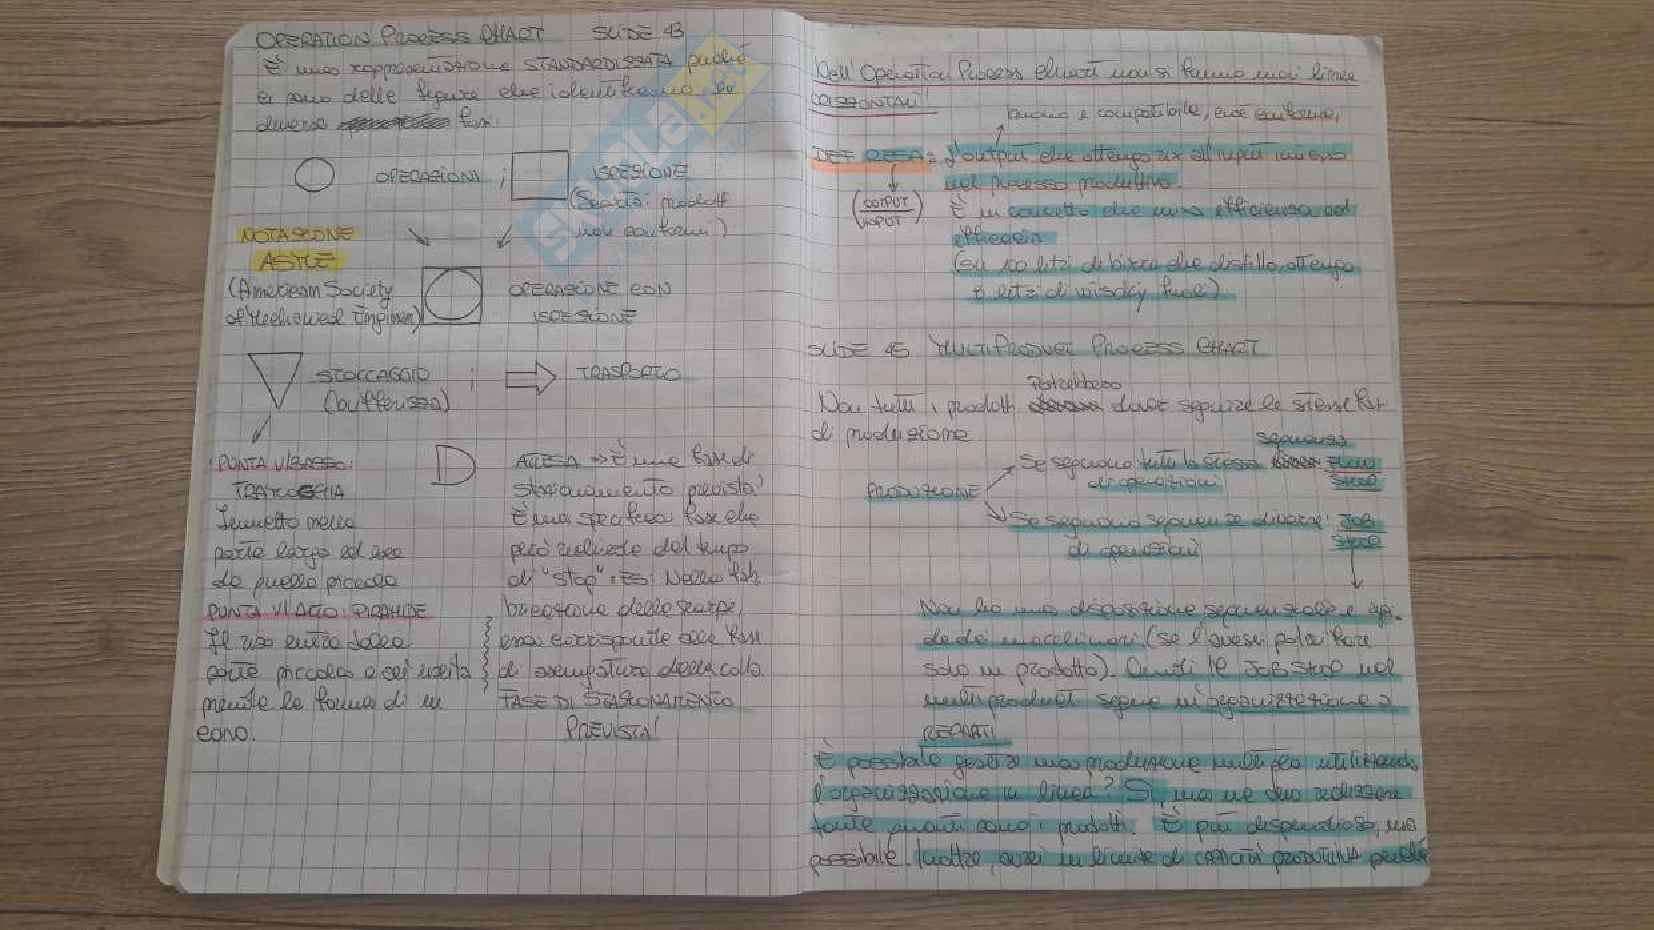 OPERATION PROCESS CHART SLIDE 43
È una rappresentazione STANDARDIZZATA perché
ci sono delle figure che identificano le
diverse fasi.
OPERAZIONI ; ISPEZIONE
(Scarto: prodotti
non conformi)
NOTAZIONE
ASME
(American Society
of Mechanical Engineers)
OPERAZIONE CON
ISPEZIONE
STOCCAGGIO ; TRASPORTO
(bufferizza)
PUNTA V/BASSO:
TRAMOGGIA
Immetto nella
parte larga ed esce
da quella piccola
PUNTA V/ALTO: PIRAMIDE
Il viso entra dalla
parte piccola e sei uscita
mentre la forma di un
cono.
ATTESA → È una fase di
stazionamento prevista!
È una specifica fase che
può richiede del tempo
di "stop". ES: Nella fab
bricazione delle scarpe,
essa corrisponde alla fase
di asciugatura della colla
FASE DI STAZIONAMENTO
PREVISTA!
Nell'Operation Process Chart non si fanno mai linee
ORIZZONTALI!
buono e compatibile, cioè conforme,
DEF RESA: L'output che ottengo dall'input immesso
nel processo produttivo.
(OUTPUT/INPUT)
È un concetto che mira efficienza ed
efficacia
(su 100 litri di birra che distillo, ottengo
8 litri di wisky fuori)
SLIDE 45 MULTIPRODUCT PROCESS CHART
Potrebbero
Non tutti i prodotti dover seguire le stesse fasi
di produzione
sequenza
PRODUZIONE
Se seguono tutti la stessa FLOW
di operazioni SHOP
Se seguono sequenze diverse: JOB
di operazioni SHOP
Non ho una disposizione sequenziale e rigi-
da dei macchinari (se l'avessi potrei fare
solo un prodotto). Quindi il JOB SHOP nel
multiproduct segue un'organizzazione a
REPARTI
È possibile gestire una produzione multipla utilizzando
l'organizzazione in linea? SI, ma ne devo realizzare
tante quanti sono i prodotti. È più dispendioso, ma
possibile. Inoltre, avrei un limite di CAPACITÀ PRODUTTIVA perché
SKUOLA.net